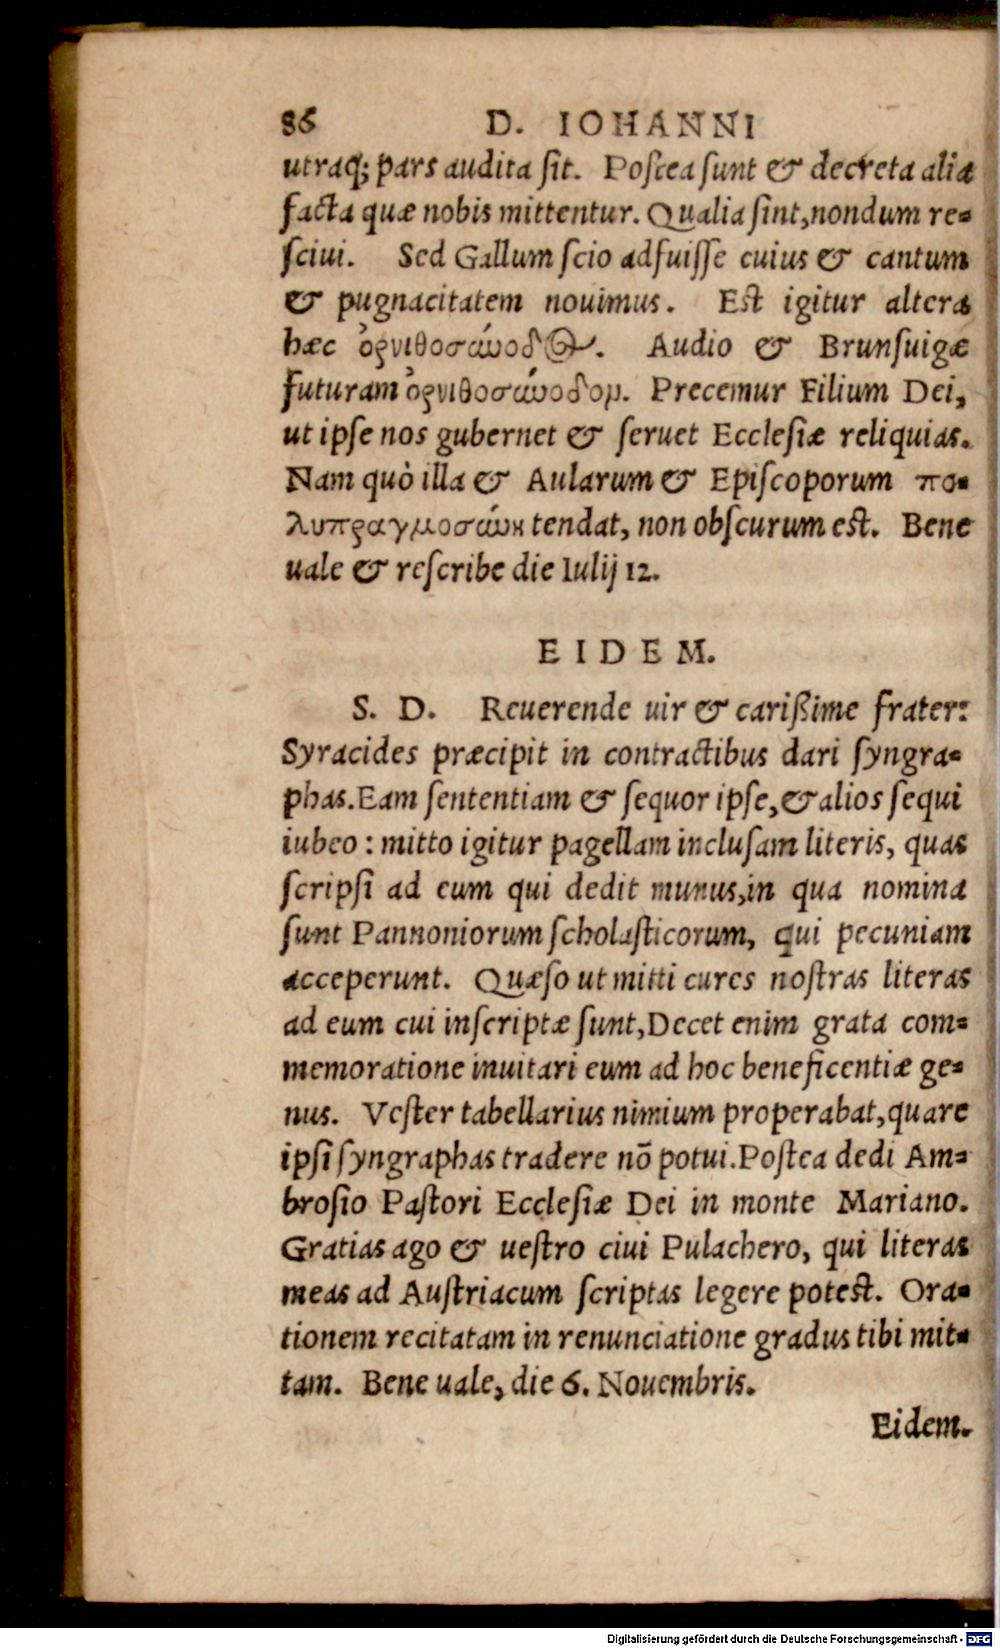 86 D. IOHANNI
utraq; pars audita ſit. Poſtea ſunt & decreta alia
facta quæ nobis mittentur. Qualia ſint, nondum re-
ſciui. Sed Gallum ſcio adfuiſſe cuius & cantum
& pugnacitatem nouimus. Eſt igitur altera
hæc ὀρνιθοσύνοδος. Audio & Brunſuigæ
futuram ὀρνιθοσύνοδομ. Precemur Filium Dei,
ut ipſe nos gubernet & ſeruet Eccleſiæ reliquias.
Nam quò illa & Aularum & Epiſcoporum πο-
λυπραγμοσύνη tendat, non obſcurum eſt. Bene
uale & reſcribe die Iulij 12.
EIDEM.
S. D. Reuerende uir & carißime frater:
Syracides præcipit in contractibus dari ſyngra-
phas. Eam ſententiam & ſequor ipſe, & alios ſequi
iubeo: mitto igitur pagellam incluſam literis, quas
ſcripſi ad eum qui dedit munus, in qua nomina
ſunt Pannoniorum ſcholaſticorum, qui pecuniam
acceperunt. Quæſo ut mitti cures noſtras literas
ad eum cui inſcriptæ ſunt, Decet enim grata com-
memoratione inuitari eum ad hoc beneficentiæ ge-
nus. Veſter tabellarius nimium properabat, quare
ipſi ſyngraphas tradere nō potui. Poſtea dedi Am-
broſio Paſtori Eccleſiæ Dei in monte Mariano.
Gratias ago & ueſtro ciui Pulachero, qui literas
meas ad Auſtriacum ſcriptas legere poteſt. Ora-
tionem recitatam in renunciatione gradus tibi mit-
tam. Bene uale, die 6. Nouembris.
Eidem.
Digitalisierung gefördert durch die Deutsche Forschungsgemeinschaft - DFG